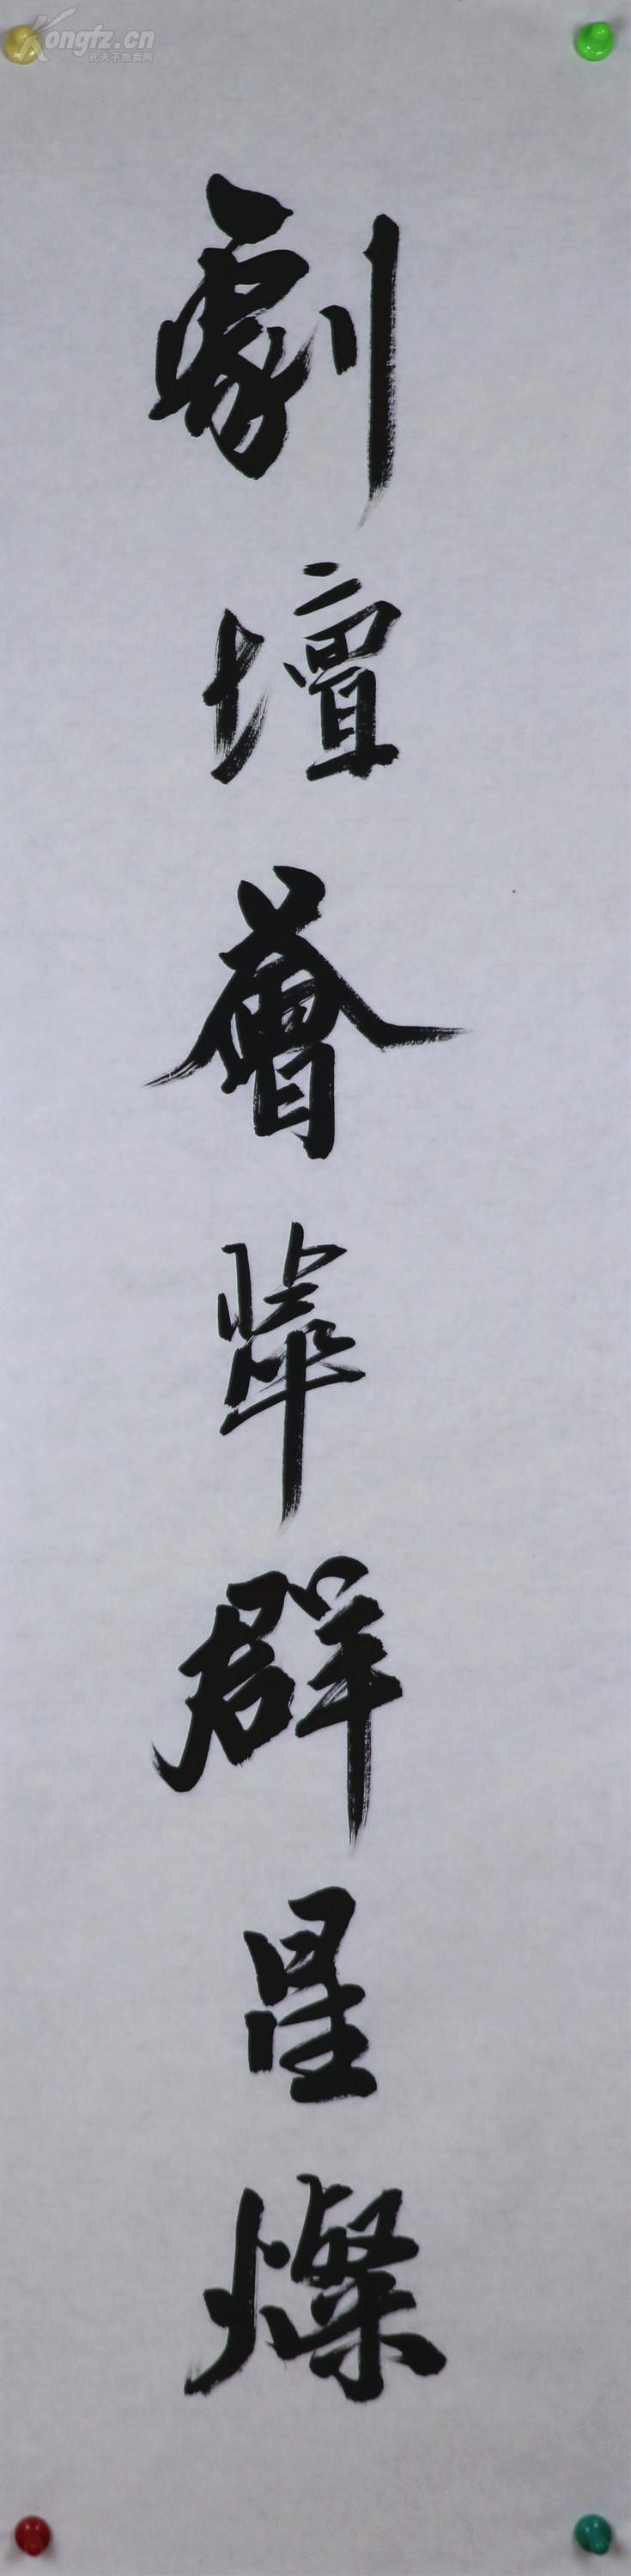 Kongfz.cn
孔夫子拍卖网
劇壇薈萃群星燦